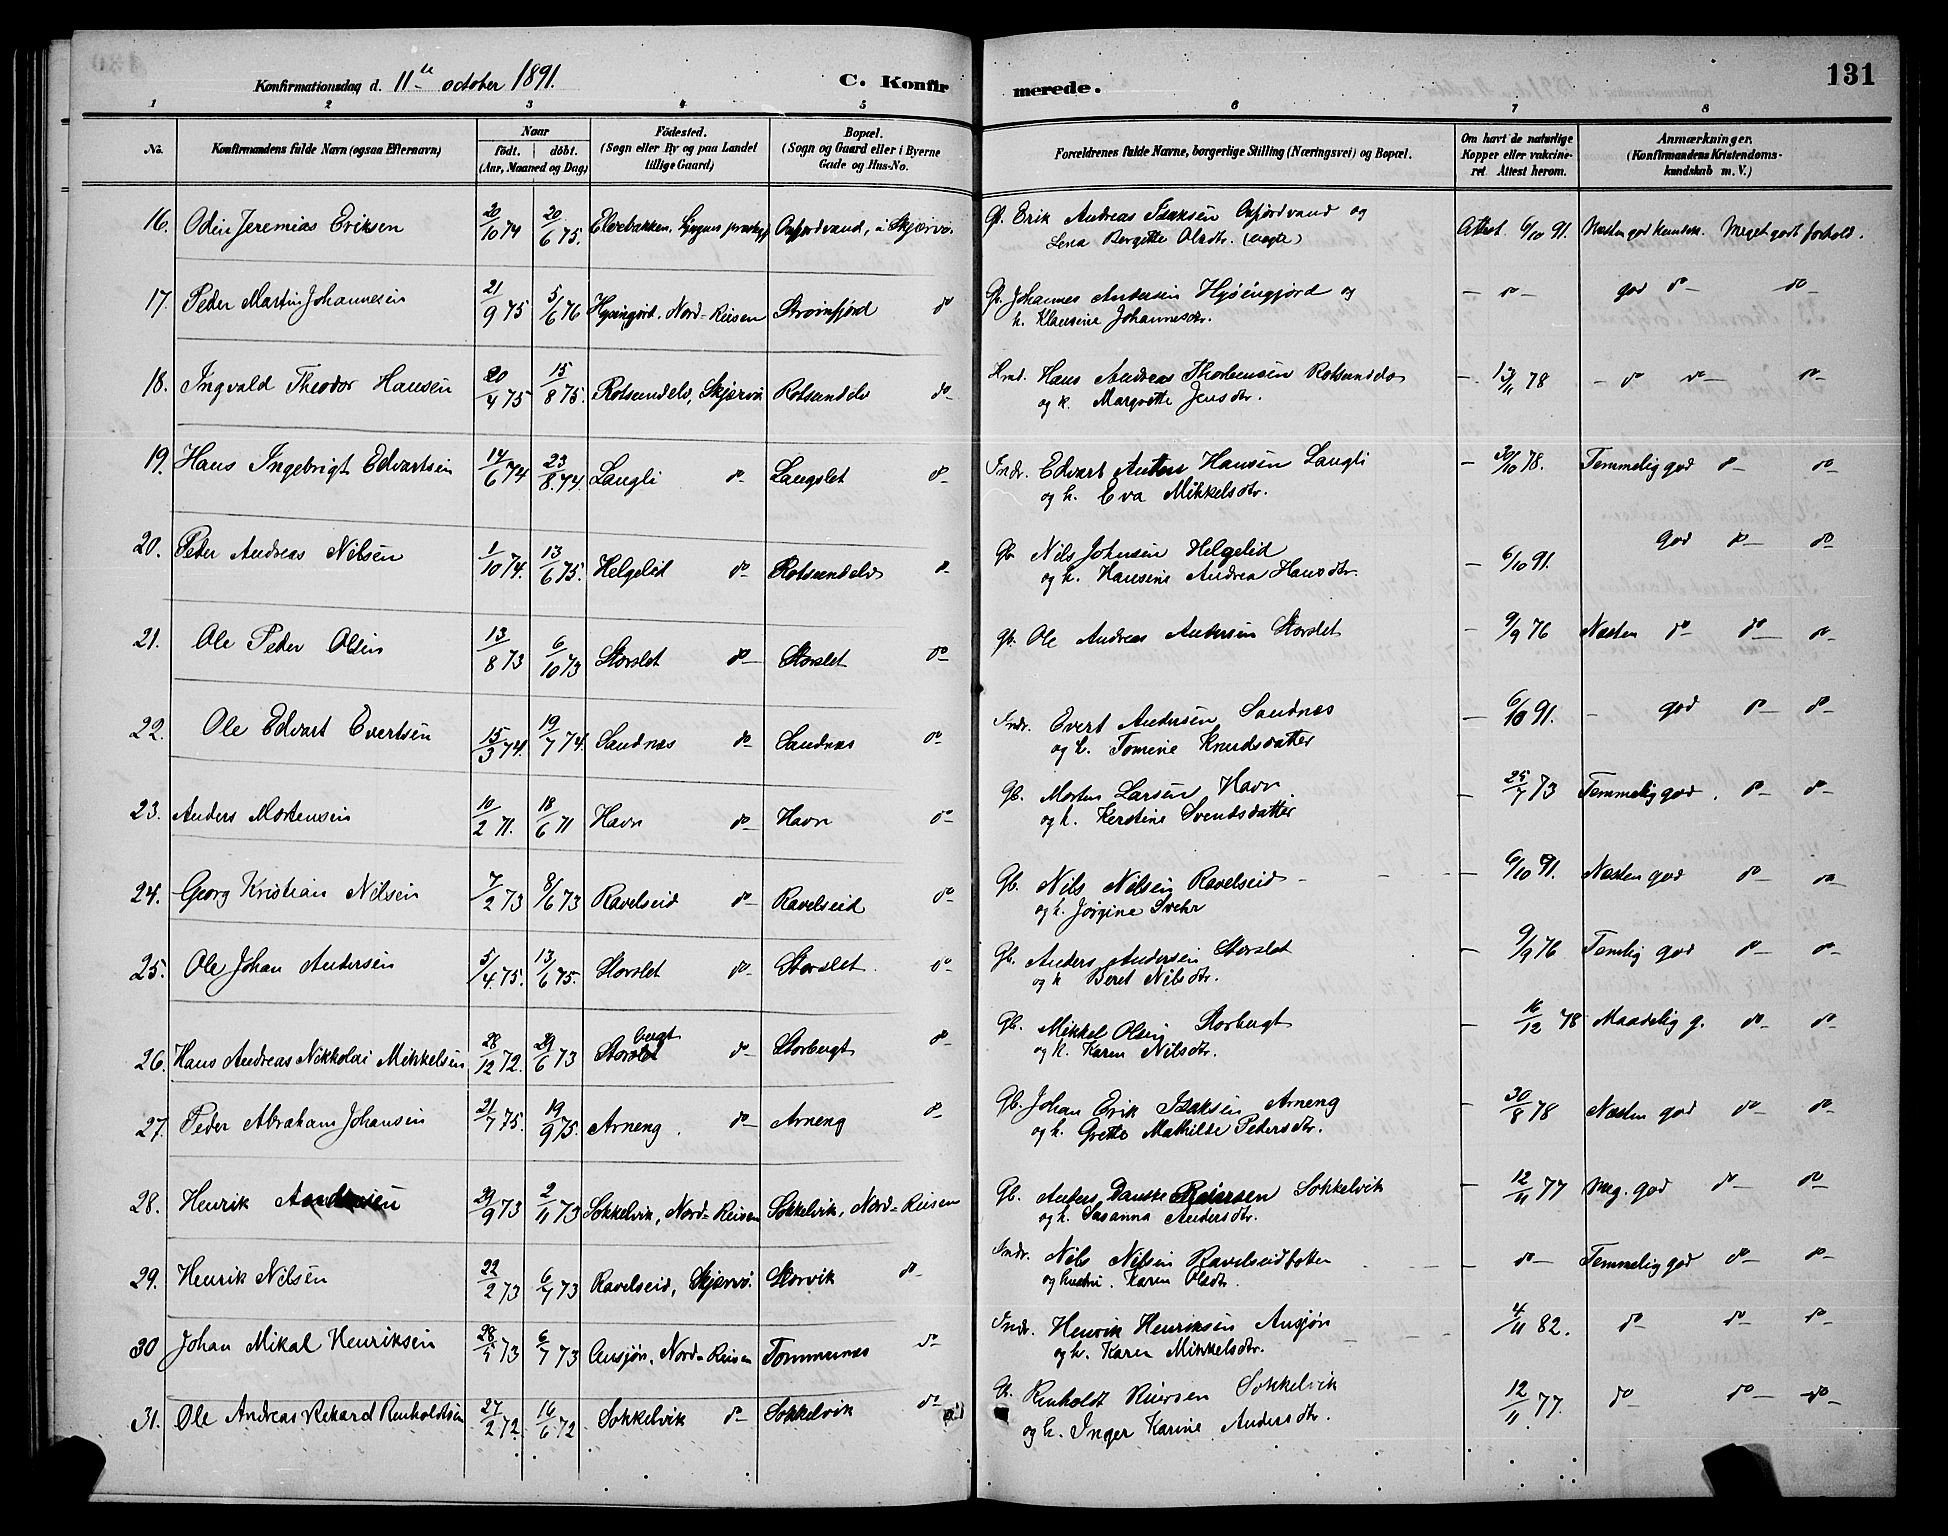 131
Konfirmationsdag d. 11te october 1891.
C. Konfirmerede.
1 2 3 4 5 6 7 8
No. Konfirmandens fulde Navn (ogsaa Efternavn)
Naar
født. døbt.
(Aar, Maaned og Dag)
Fødested.
(Sogn eller By og paa Landet
tillige Gaard)
Bopæl.
(Sogn og Gaard eller i Byerne
Gade og Hus-No.
Forældrenes fulde Navne, borgerlige Stilling (Næringsvei) og Bopæl.
Om havt de naturlige
Kopper eller vakcine-
ret Attest herom.
Anmærkninger.
(Konfirmandens Kristendoms-
kundskab m. V.)
16. Odin Jeremias Eriksen 20/10 74 20/6 75. Elvebakken, Lyngens Oxfjordvand, i Skjærvø. Gb. Erik Andreas Isaksen Oxfjordvand og Attest 6/10 91. Næsten god kundsk. Meget godt forhold.
Lena Bergitte Olsdtr. (ægte)
17. Peder Martin Johannesen 21/9 75 5/6 76 Nord-Reisen Straumfjord do Gb. Johannes Andersen og – do – god do – do
h. Klausine Johannesdtr.
18. Ingvald Theodor Hansen 20/4 75 15/8 75. Rotsundelv, Skjærvø Rotsundelv do – Hans Andreas Thorbensen Rotsundelv – 13/11 78 – do do – do –
og k. Margrethe Jensdtr.
19. Hans Ingebrigt Edvartsen 14/6 74 23/8 74. Langli do – Langslet do – Indr. Edvart Anton Hansen Langli – 30/10 78. Temmelig god do – do –
og h. Eva Mikkelsdtr.
20. Peder Andreas Nilsen 1/10 74. 13/6 75. Helgelid do – Rotsundelv do – Gb. Nils Johnsen Helgelid – 6/10 91. god do – do
og h. Hansine Andrea Hansdtr.
21. Ole Peder Olsen 13/8 73 6/10 73 Storslet do – Storslet do – Gb. Ole Andreas Andersen Storslet – 9/9 76 Næsten do – do – do –
22. Ole Edvart Evertsen 15/3 74. 19/7 74. Sandnæs do – Sandnæs do – Indr. Evert Andersen Sandnæs – 6/10 91. – god do – do –
og h. Tomine Knudsdatter
23. Anders Mortensen 10/2 71. 18/6 71 Havn do – Havn do – Gb. Morten Larsen Havn. – 25/7 73 Temmelig god. do – do –
og h. Kerstine Svendsdatter
24. Georg Kristian Nilsen 7/2 73 8/6 73 Ravelseid do – Ravelseid do Gb. Nils Nilsen Ravelseid – 6/10 91. Næsten god do – do –
og h. Jørgine Svehr
25. Ole Johan Andersen 5/4 75. 13/6 75. Storslet do – Storslet. do – Gb. Anders Andersen Storslet – 9/9 76 Temlig god do – do –
og h Beret Nilsdtr.
26. Hans Andreas Nikkolai Mikkelsen 28/12 72. 29/6 73 Storslet bergt do – Storbergt do – Gb. Mikkel Olsen Storbergt – 16/12 78 Maadelig g. do – do –
og h. Karen Nilsdtr.
27. Peder Abraham Johansen 21/7 75. 19/9 75. Arneng. do – Arneng do – Gb. Johan Erik Isaksen Arneng – 30/8 78 Næsten god do – do –
og h. Grette Mathilde Pedersdtr.
28. Henrik Andersen 29/9 73 2/11 73 Sokkelvik, Nord-Reisen Sokkelvik, Nord-Reisen Gb. Anders Danske Reiersen Sokkelvik – 12/11 77 Meg. god do – do –
og h. Susanna Andersdtr.
29. Henrik Nilsen 22/2 73 6/7 73 Ravelseid, Skjærvø. Storvik do – Indr. Nils Nilsen Ravelseidbotten – do – Temmelig god do – do –
og hustru. Karen Olsdtr.
30 Johan Mikal Henriksen 73 6/7 73 Ausjøn, Nord-Reisen Tommernæs do – Indr. Henrik Henriksen Ausjøn 4/11 82. do – do – do –
og h. Karen Mikkelsdtr.
31. Ole Andreas Rikard Renholdtsen 27/2 72. 16/6 72 Sokkelvik do – Sokkelvik do – Gb. Renholdt Riersen Sokkelvik 12/11 77. do – do – do
og h. Inger Karine Andersdtr.